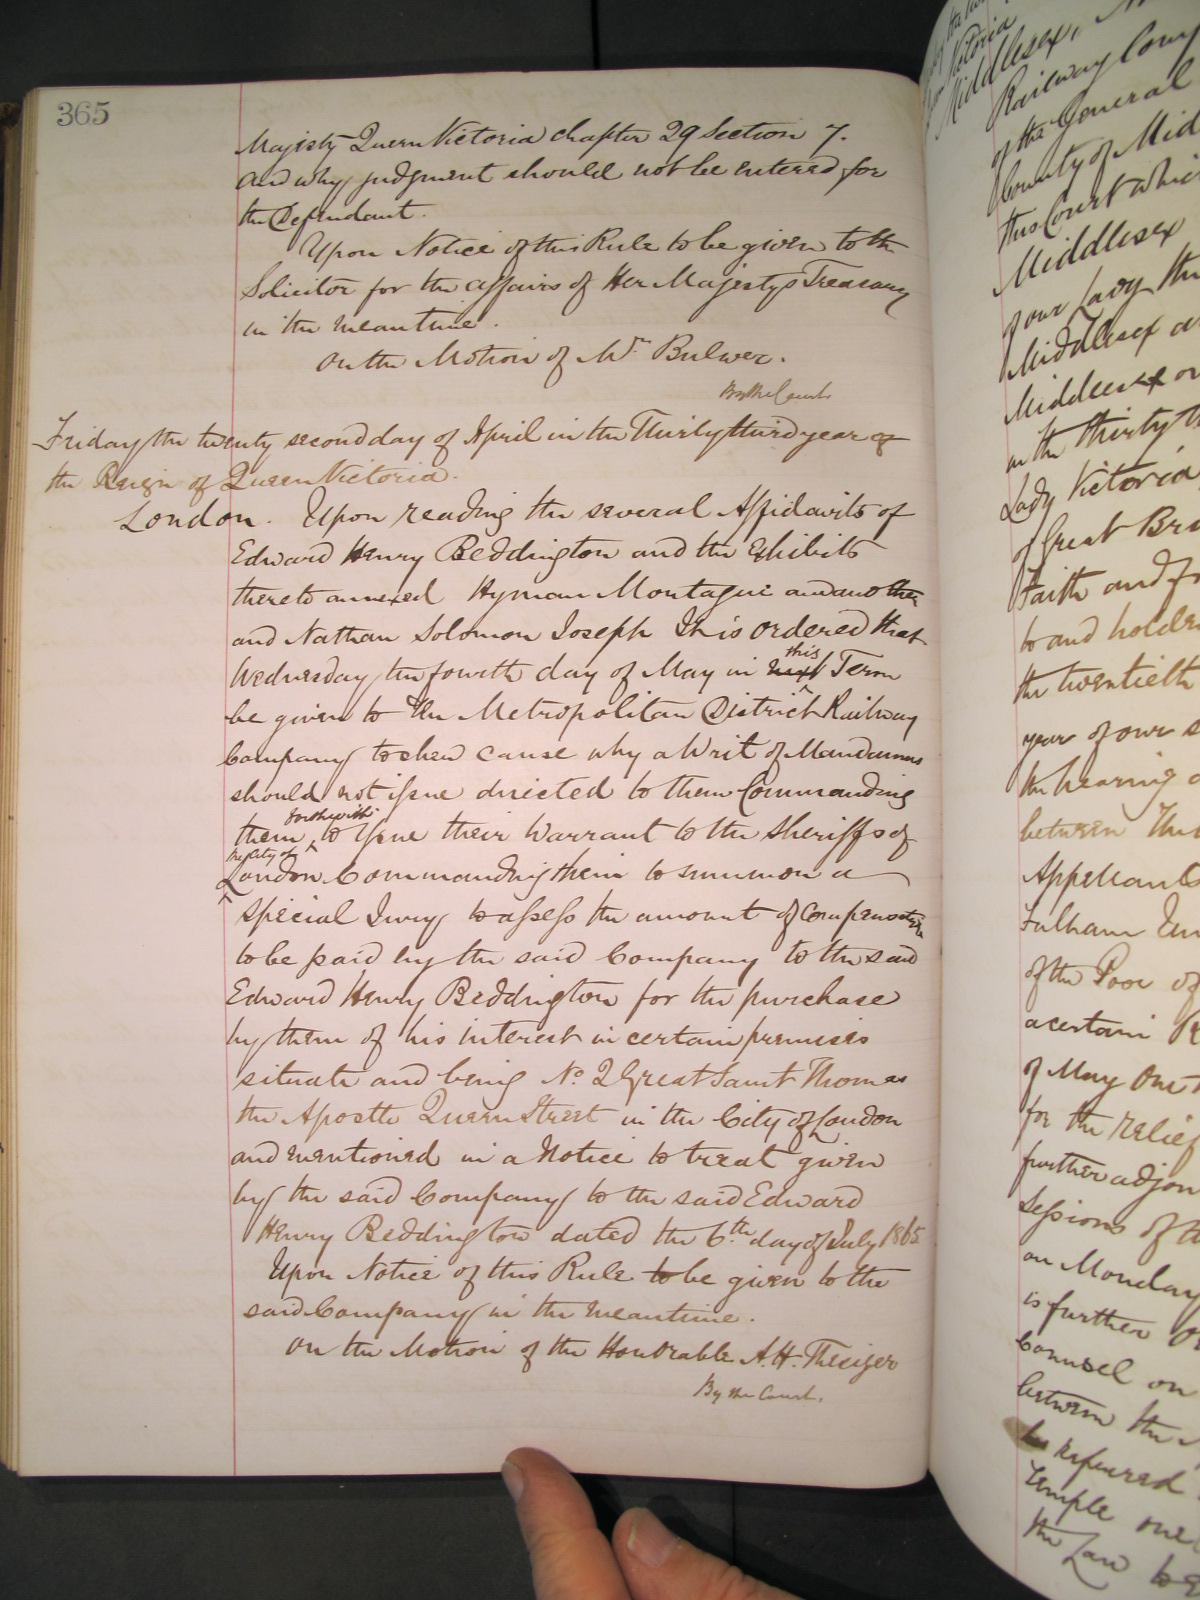 365
Majesty Queen Victoria chapter 29 Section 7.
and why judgment should not be entered for
the Defendant.
Upon Notice of this Rule to be given to the
Solicitor for the affairs of Her Majestys Treasury
in the meantime.
On the Motion of Mr Bulwer.
By the Court
Friday the twenty second day of April in the Thirty third year of
the Reign of Queen Victoria.
London. Upon reading the several Affidavits of
Edward Henry Beddington and the Exhibits
thereto annexed Hyman Montague and another
and Nathan Solomon Joseph It is ordered that
Wednesday the fourth day of May in next this Term
be given to the Metropolitan District Railway
Company to shew cause why a Writ of Mandamus
should not issue directed to them Commanding
them forthwith to issue their Warrant to the Sheriffs of
the City of London Commanding them to summon a
special Jury to assess the amount of Compensation
to be paid by the said Company to the said
Edward Henry Beddington for the purchase
by them of his interest in certain premises
situate and being No 2 Great Saint Thomas
the Apostle Queen Street in the City of London
and mentioned in a Notice to treat given
by the said Company to the said Edward
Henry Beddington dated the 6th day of July 1865
Upon Notice of this Rule to be given to the
said Company in the meantime.
On the Motion of the Honorable A. H. Thesiger
By the Court.
Victoria
Middlesex,
Railway Comp
of the General
County of Mid
this Court whic
Middlesex
of our Lady the
Middlesex
Middlesex or
in the thirty th
Lady Victoria
of Great Bri
Faith and fo
to and holde
the twentieth
year of our s
the hearing o
between The
Appellants
Fulham Un
of the Poor of
a certain R
of May One
for the relief
further adjou
Sessions of th
on Monday
is further Or
Counsel on
between the
be referred
Temple one
the Law to